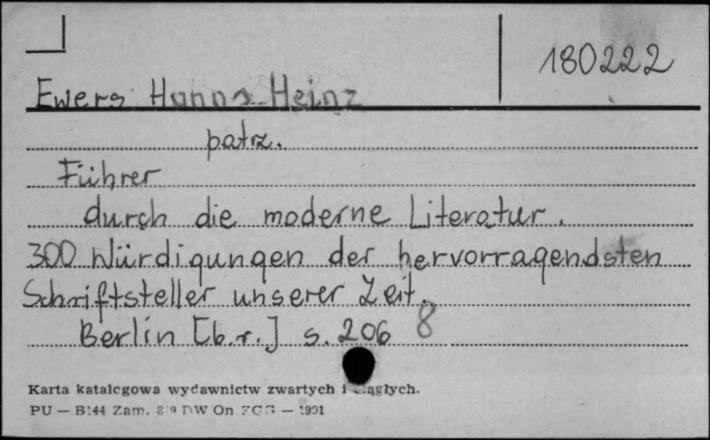 180222
Ewers Hanns Heinz
patrz.
Führer
durch die moderne Literatur.
300 Würdigungen der hervorragendsten
Schriftsteller unserer Zeit.
Berlin [b.r.] s. 206 8
Karta katalogowa wydawnictw zwartych i ciągłych.
PU — B144 Zam. DW On — 1991